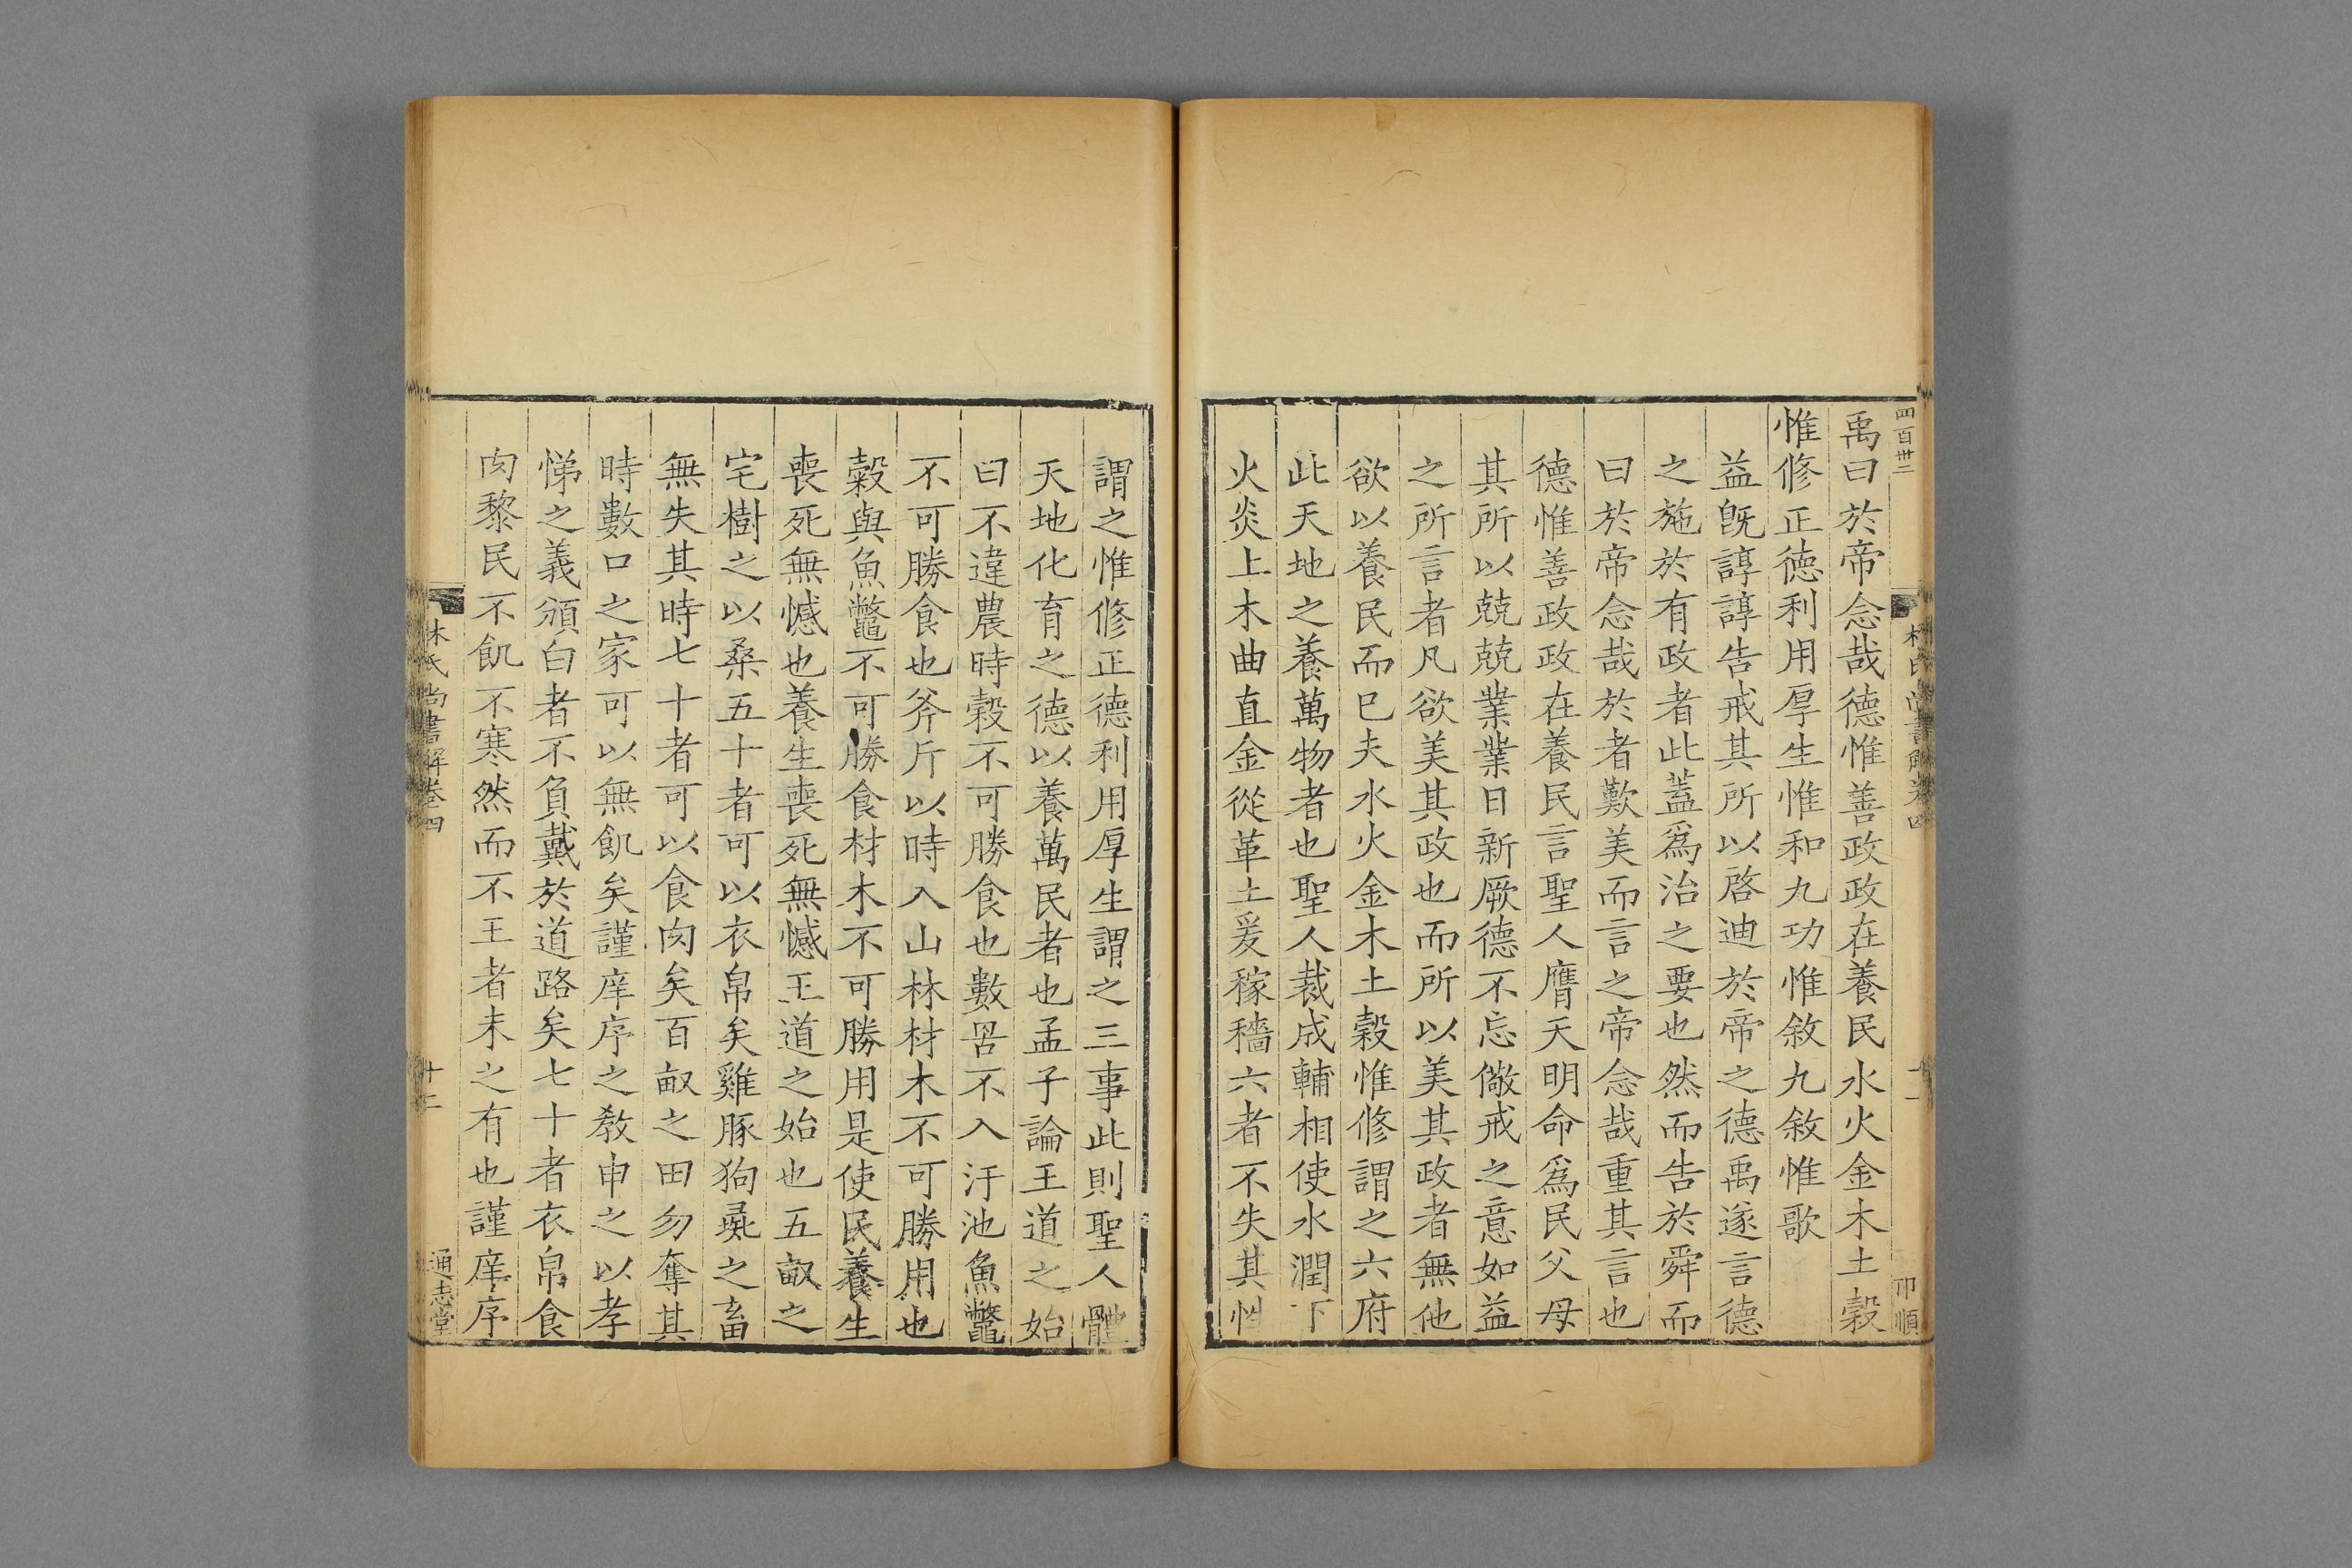 四百卅二
禹曰於帝念哉德惟善政政在養民水火金木土穀
惟修正德利用厚生惟和九功惟敘九敘惟歌
益旣諄諄告戒其所以啓迪於帝之德禹遂言德
之施於有政者此蓋爲治之要也然而告於舜而
曰於帝念哉於者歎美而言之帝念哉重其言也
德惟善政政在養民言聖人膺天明命爲民父母
其所以兢兢業業日新厥德不忘儆戒之意如益
之所言者凡欲美其政也而所以美其政者無他
欲以養民而已夫水火金木土穀惟修謂之六府
此天地之養萬物者也聖人裁成輔相使水潤下
火炎上木曲直金從革土爰稼穡六者不失其性
謂之惟修正德利用厚生謂之三事此則聖人體
天地化育之德以養萬民者也孟子論王道之始
曰不違農時穀不可勝食也數罟不入汙池魚鼈
不可勝食也斧斤以時入山林材木不可勝用也
穀與魚鼈不可勝食材木不可勝用是使民養生
喪死無憾也養生喪死無憾王道之始也五畝之
宅樹之以桑五十者可以衣帛矣雞豚狗彘之畜
無失其時七十者可以食肉矣百畝之田勿奪其
時數口之家可以無飢矣謹庠序之敎申之以孝
悌之義頒白者不負戴於道路矣七十者衣帛食
肉黎民不飢不寒然而不王者未之有也謹庠序
林氏尚書解卷四
十二
通志堂